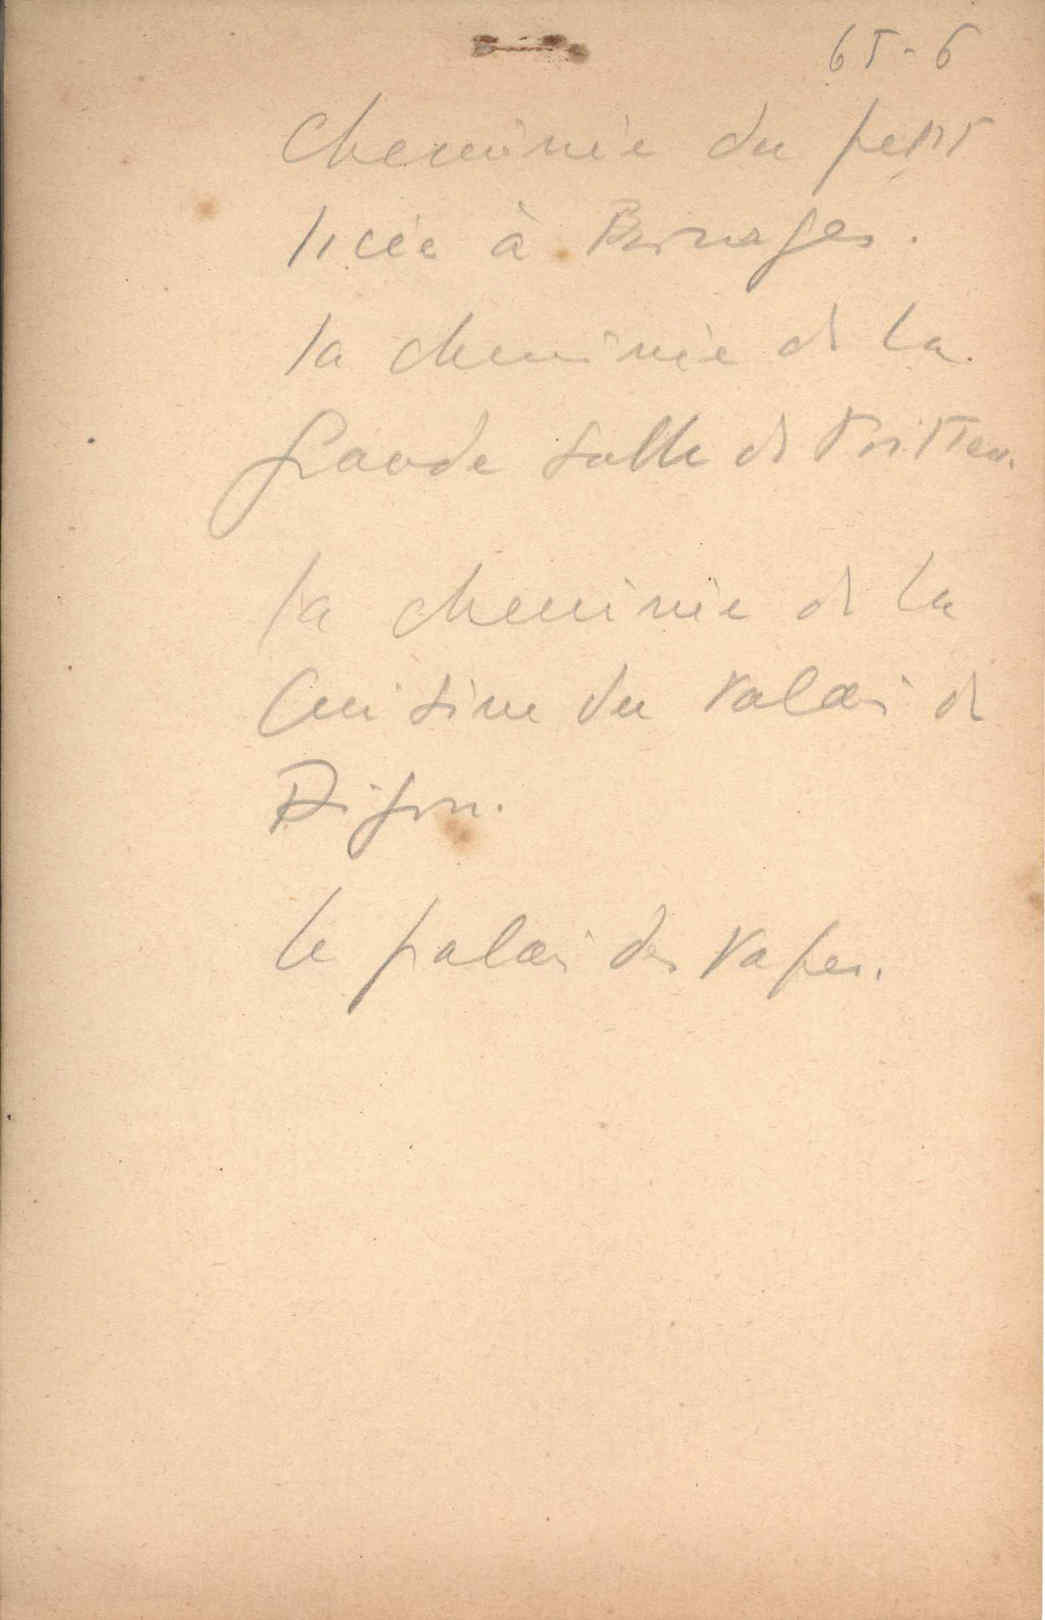 65-6
Cheminée du petit
licée à Bourges.
la cheminée de la
grande salle de Poitiers.
la cheminée de la
Cuisine du Palais de
Dijon.
le palais des Papes.